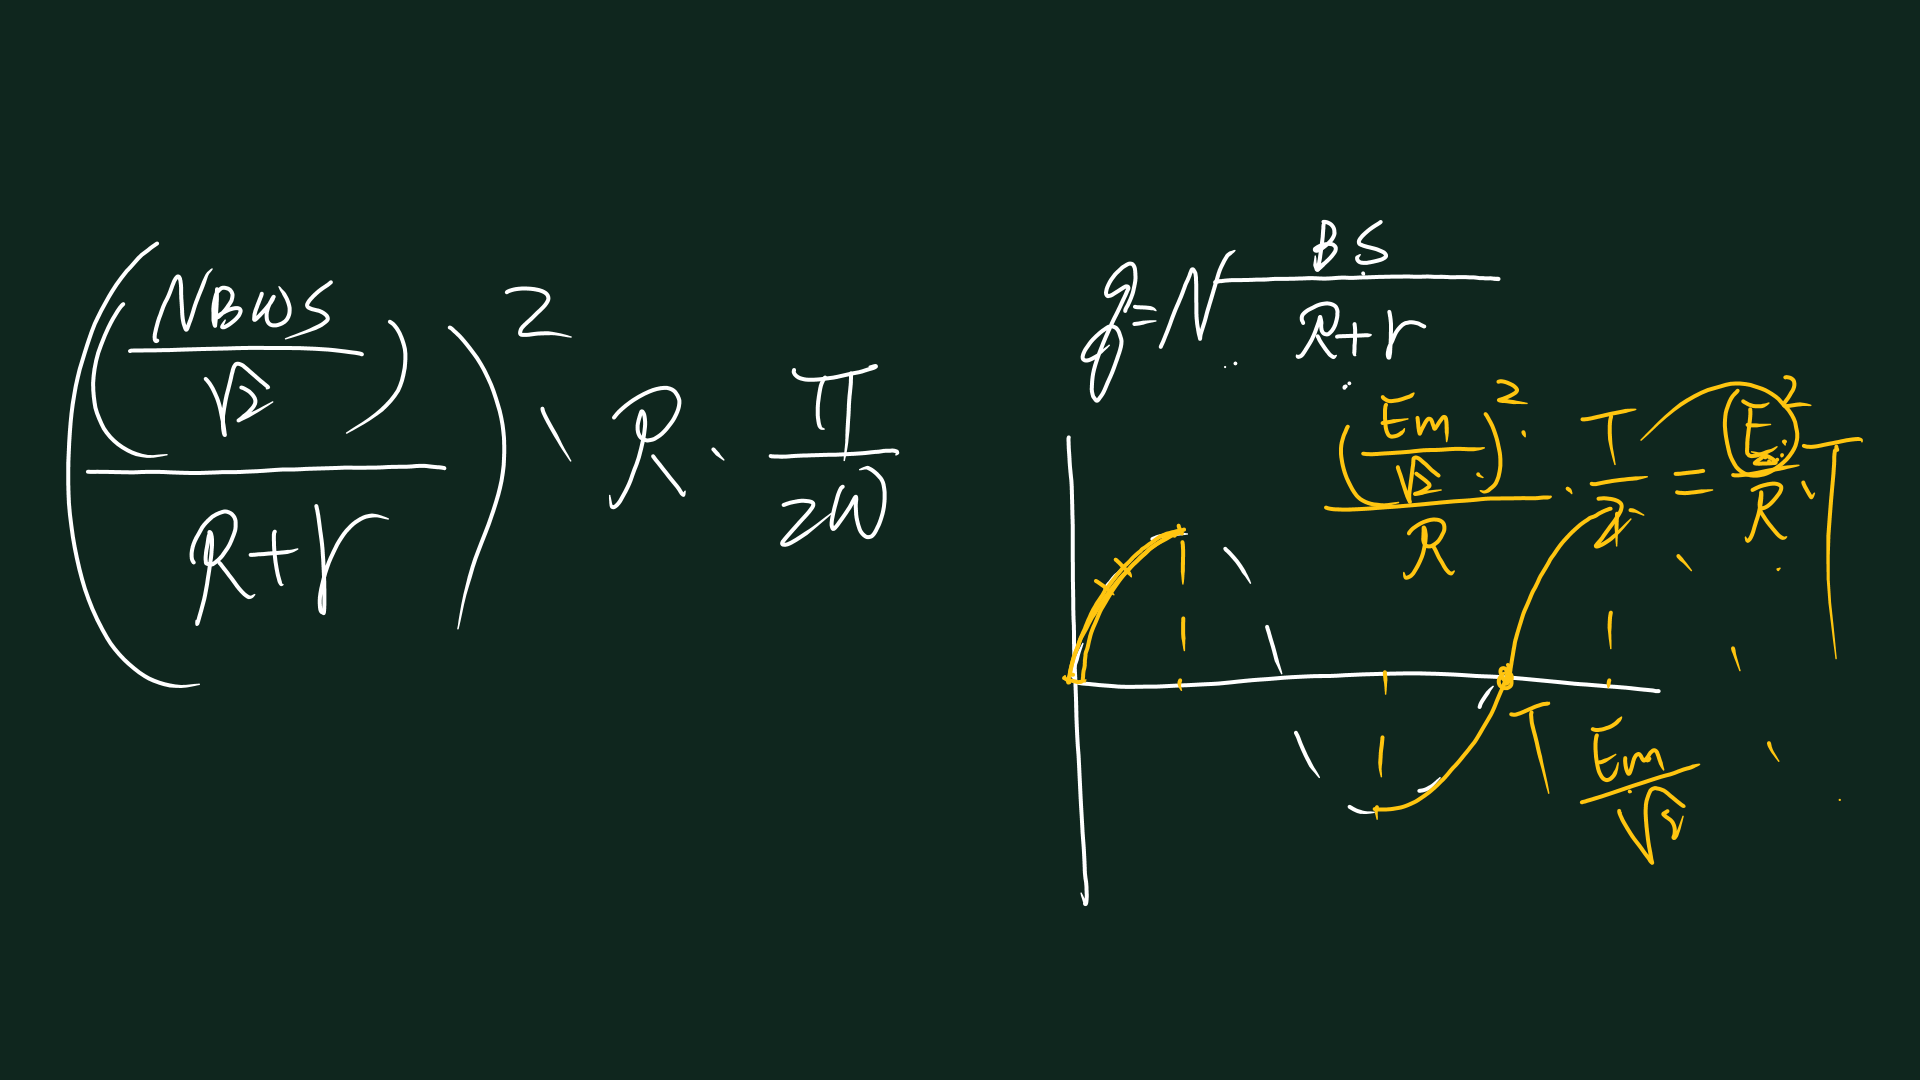 ((NBωS/√2)/(R+r))² · R · π/2ω
q=N BS/(R+r)
(Em/√2)²/R · T/2 = (E)²/R · T
T
Em/√2